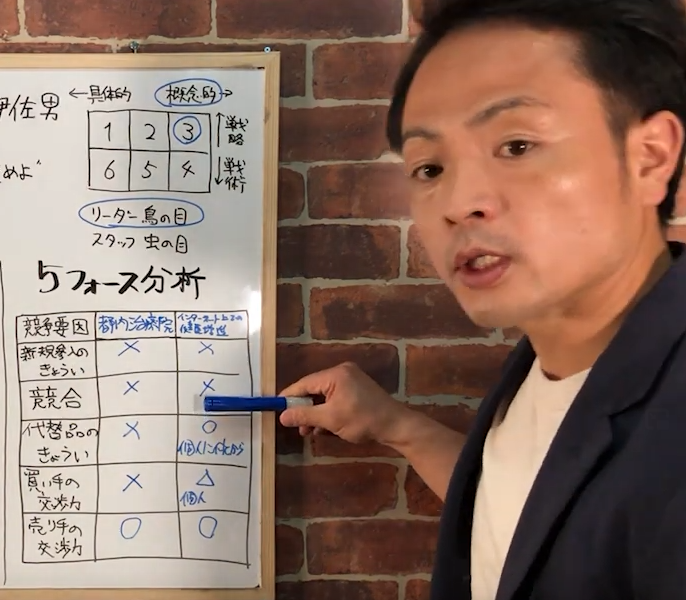 伊佐男
めよ"
←具体的 概念的→
1 2 3
6 5 4
↑戦略
↓戦術
リーダー 鳥の目
スタッフ 虫の目
5フォース分析
競争要因 都内治療院 インターネット上での
新規参入の
きょうい × ×
競合 × ×
代替品の
きょうい × ○
買い手の
交渉力 × △
個人
売り手の
交渉力 ○ ○